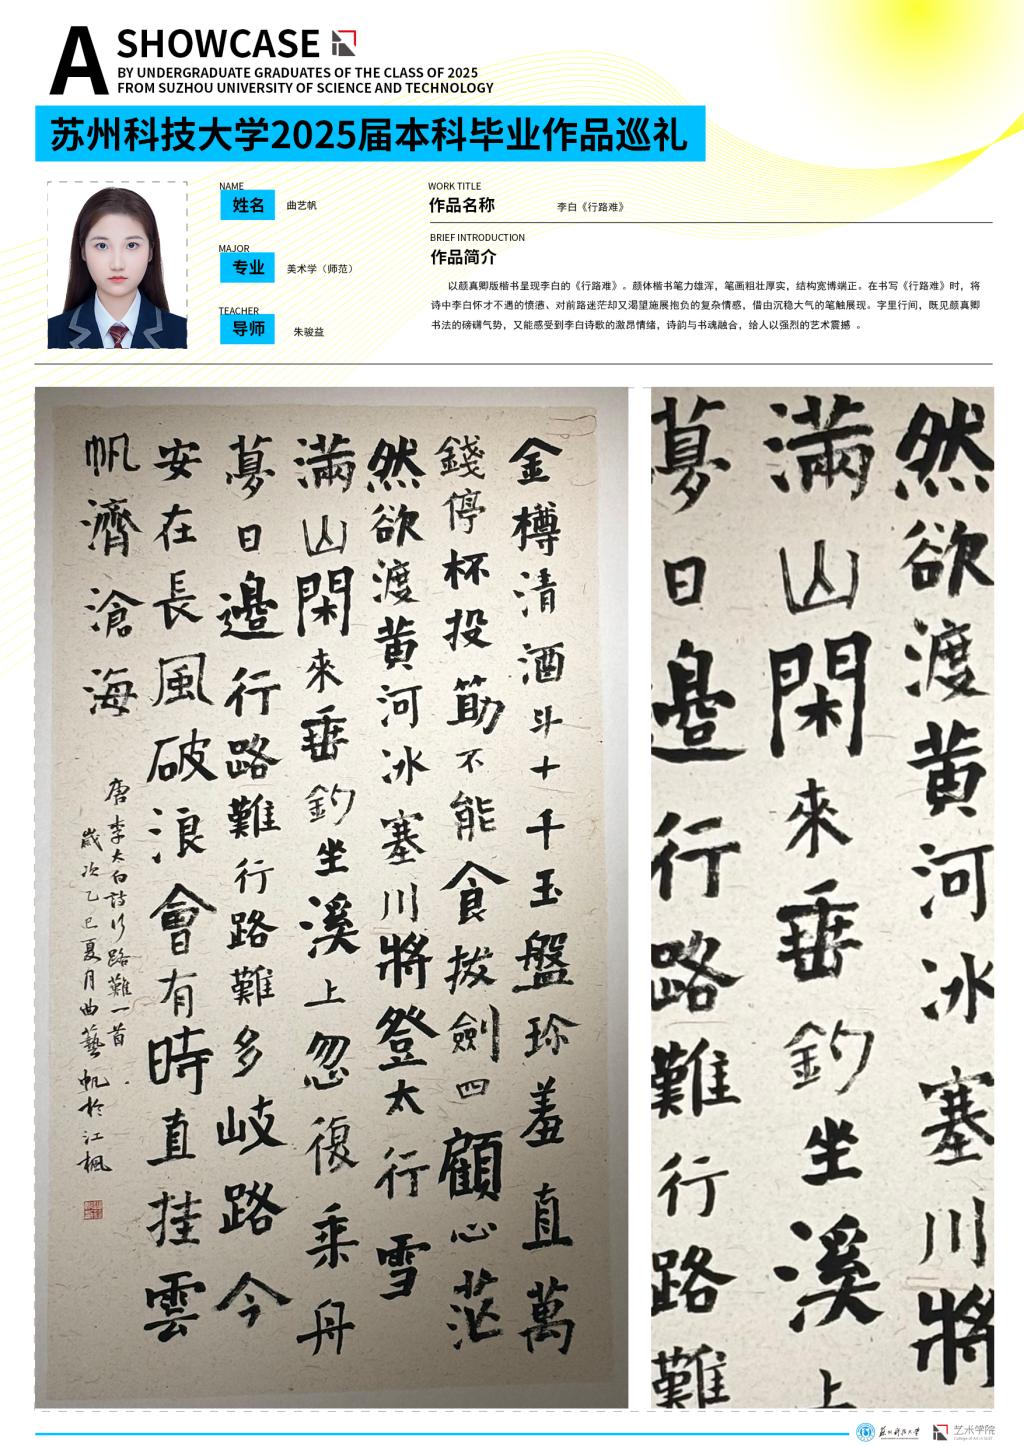 A SHOWCASE
BY UNDERGRADUATE GRADUATES OF THE CLASS OF 2025
FROM SUZHOU UNIVERSITY OF SCIENCE AND TECHNOLOGY
苏州科技大学2025届本科毕业作品巡礼
NAME
姓名 曲艺帆
MAJOR
专业 美术学（师范）
TEACHER
导师 朱骏益
WORK TITLE
作品名称 李白《行路难》
BRIEF INTRODUCTION
作品简介
以颜真卿版楷书呈现李白的《行路难》。颜体楷书笔力雄浑，笔画粗壮厚实，结构宽博端正。在书写《行路难》时，将
诗中李白怀才不遇的愤懑、对前路迷茫却又渴望施展抱负的复杂情感，借由沉稳大气的笔触展现。字里行间，既见颜真卿
书法的磅礴气势，又能感受到李白诗歌的激昂情绪，诗韵与书魂融合，给人以强烈的艺术震撼 。
金樽清酒斗十千玉盤珍羞直萬
錢停杯投筯不能食拔劍四顧心茫
然欲渡黄河冰塞川將登太行雪
滿山閑來垂釣坐溪上忽復乘舟
夢日邊行路難行路難多岐路今
安在長風破浪會有時直挂雲
帆濟滄海
唐李太白詩行路難一首
歲次乙巳夏月曲藝帆於江楓
然欲渡黄河冰塞川將
滿山閑來垂釣坐溪上
夢日邊行路難行路難
苏州科技大学
艺术学院